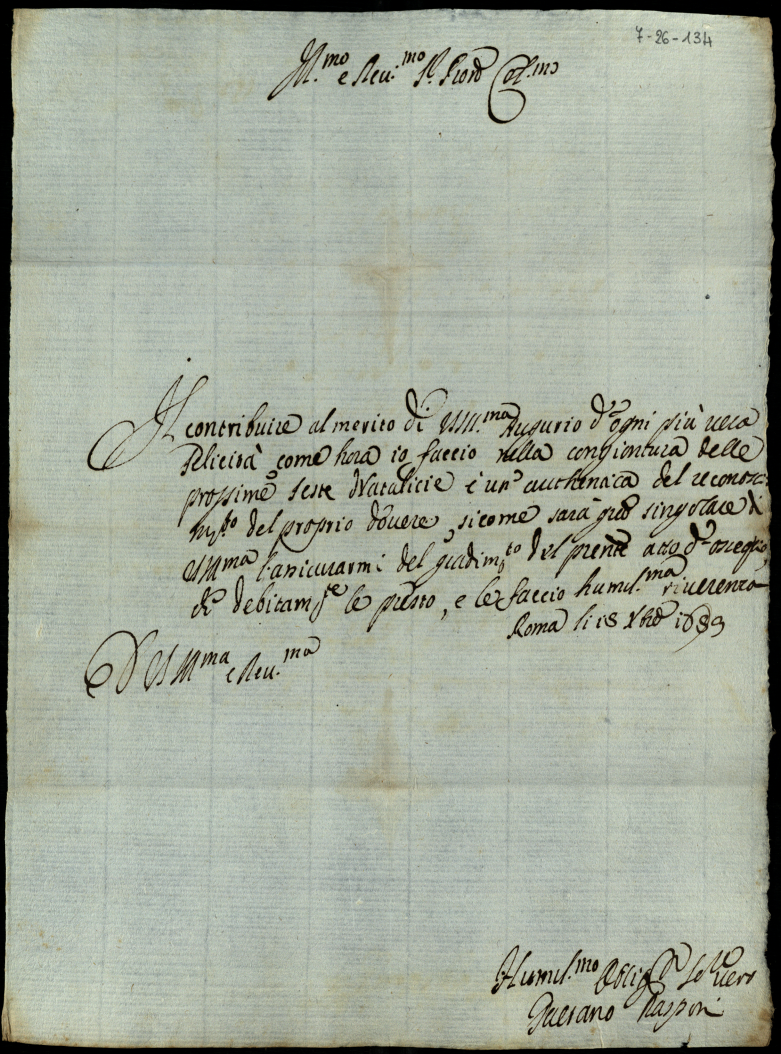 7-26-134
Ill.mo e Reu.mo Sig.r Prone Col.mo
Il contribuire al merito di V.S. Ill.ma Augurio d'ogni più uera
Felicità come hora io faccio nella congiontura delle
prossime feste Natalicie è un' authentica del reconosci-
m.to del proprio douere, sicome sarà fauore singolare di
VS Ill.ma l'assicurarmi del gradim.to del pnte atto d'ossequio,
che debitam.te le presto, e le faccio humil.ma riuerenza
Roma li 18 Xbre 1689
D V S Ill.ma e Reu.ma
Humil.mo Oblig.mo Se.re uero
Gaetano Rasponi